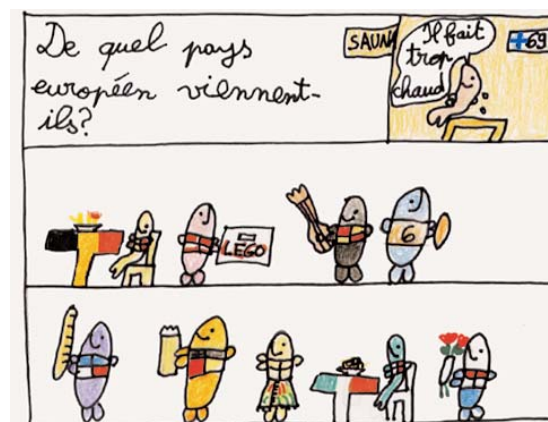 De quel pays
européen viennent-
ils?
SAUNA
Il fait
trop
chaud
+69
LEGO
6